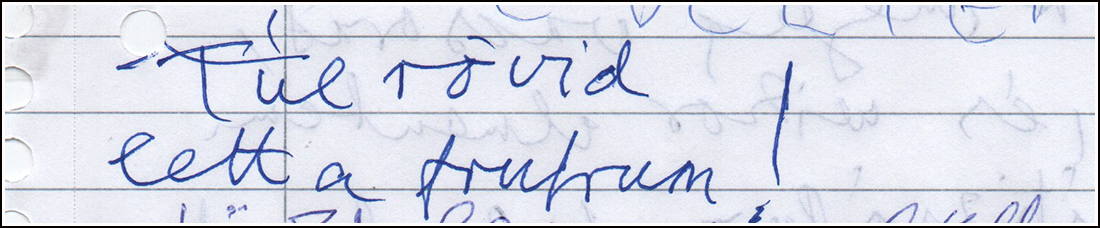 Túl rövid
lett a frufrum!